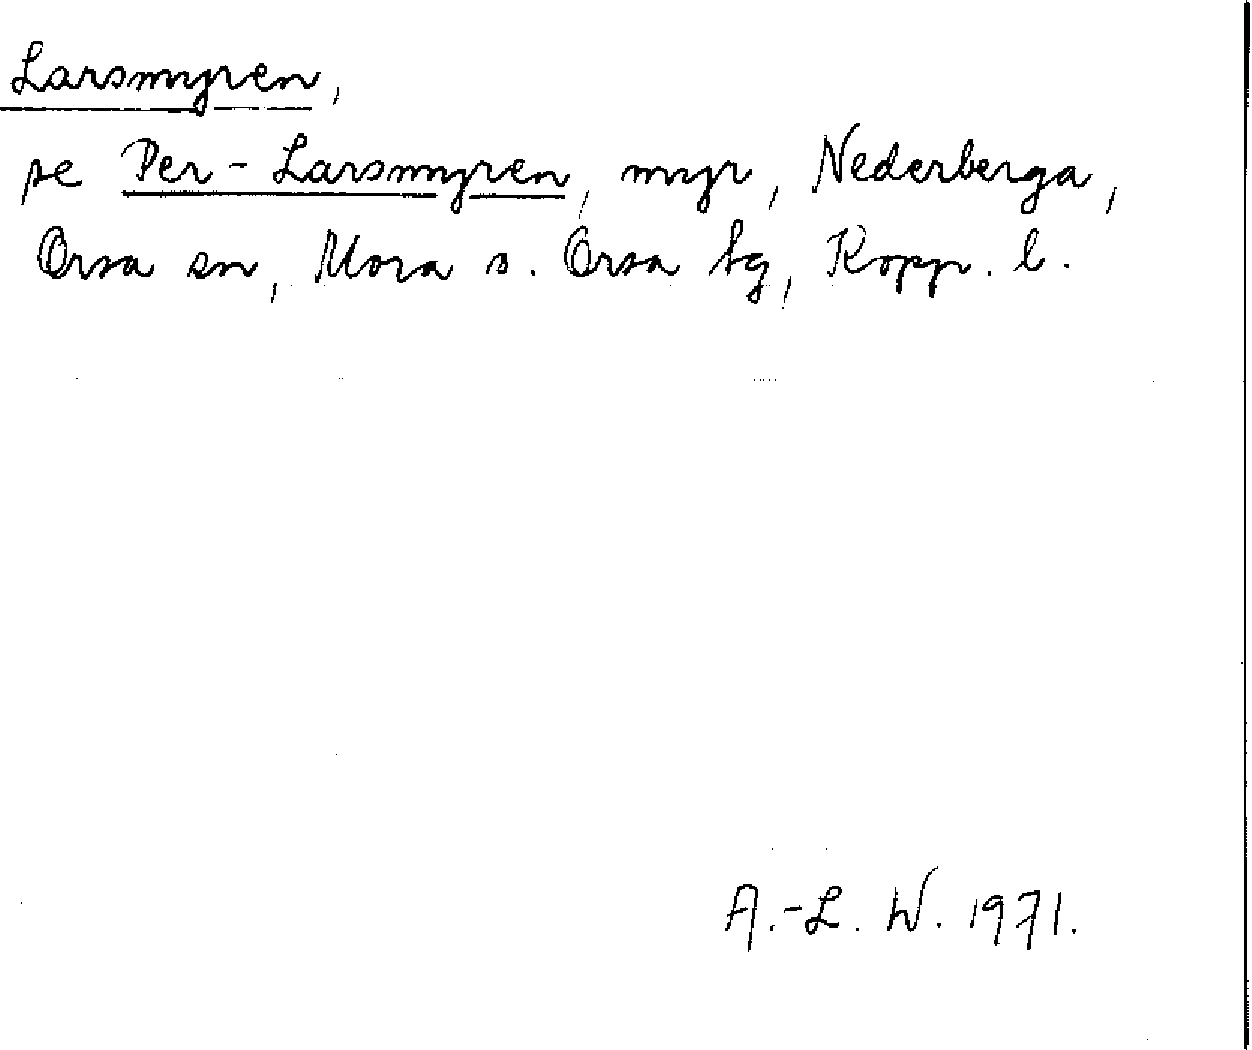 Larsmyren,
se Per-Larsmyren, myr, Nederberga,
Orsa sn, Mora o. Orsa tg, Kopp. l.
A.-L. W. 1971.